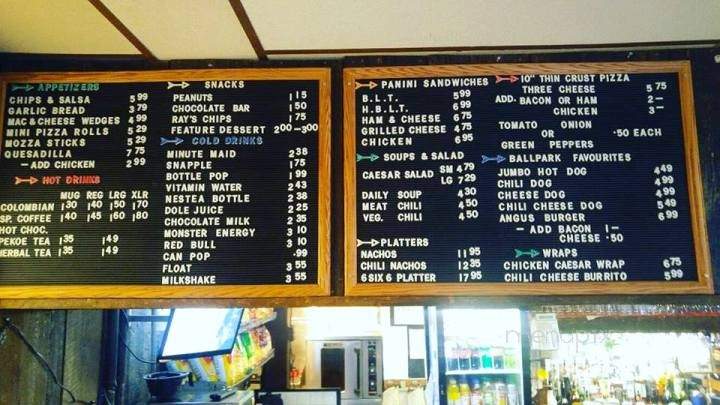 APPETIZERS
CHIPS & SALSA 5 99
GARLIC BREAD 3 79
MAC & CHEESE WEDGES 4 99
MINI PIZZA ROLLS 5 29
MOZZA STICKS 5 29
QUESADILLA 7 75
- ADD CHICKEN 2 99
HOT DRINKS
MUG REG LRG XLR
COLOMBIAN 1 30 1 40 1 50 1 70
SP. COFFEE 1 40 1 45 1 60 1 80
HOT CHOC.
PEKOE TEA 1 35 1 49
HERBAL TEA 1 35 1 49
SNACKS
PEANUTS 1 15
CHOCOLATE BAR 1 50
RAY'S CHIPS 1 75
FEATURE DESSERT 2 00 - 3 00
COLD DRINKS
MINUTE MAID 2 38
SNAPPLE 1 75
BOTTLE POP 1 99
VITAMIN WATER 2 43
NESTEA BOTTLE 2 38
DOLE JUICE 2 25
CHOCOLATE MILK 2 35
MONSTER ENERGY 3 10
RED BULL 3 10
CAN POP .99
FLOAT 3 55
MILKSHAKE 3 55
PANINI SANDWICHES
B.L.T. 5 99
H.B.L.T. 6 99
HAM & CHEESE 6 75
GRILLED CHEESE 4 75
CHICKEN 6 95
SOUPS & SALAD
CAESAR SALAD SM 4 79
LG 7 29
DAILY SOUP 4 30
MEAT CHILI 4 50
VEG. CHILI 4 50
PLATTERS
NACHOS 11 95
CHILI NACHOS 12 35
6 SIX 6 PLATTER 17 95
10" THIN CRUST PIZZA
THREE CHEESE 5 75
ADD. BACON OR HAM 2 -
CHICKEN 3 -
TOMATO ONION
OR .50 EACH
GREEN PEPPERS
BALLPARK FAVOURITES
JUMBO HOT DOG 4 49
CHILI DOG 4 99
CHEESE DOG 4 99
CHILI CHEESE DOG 5 49
ANGUS BURGER 6 99
- ADD BACON 1 -
CHEESE .50
WRAPS
CHICKEN CAESAR WRAP 6 75
CHILI CHEESE BURRITO 5 99